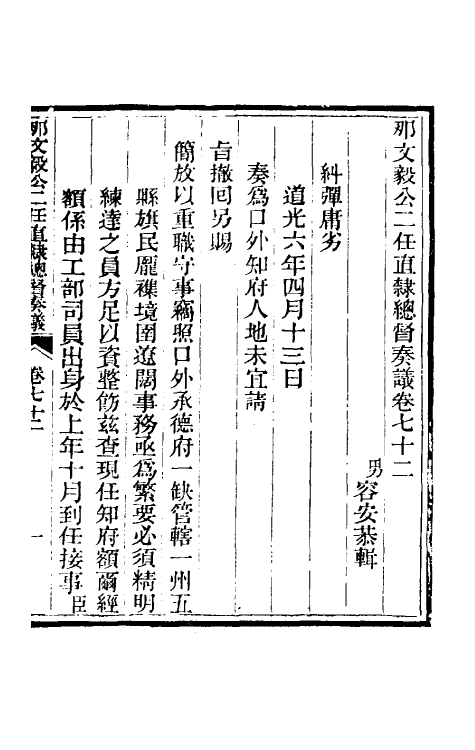 那文毅公二任直隸總督奏議卷七十二
男容安恭輯
糾彈庸劣
道光六年四月十三日
奏爲口外知府人地未宜請
旨撤回另賜
簡放以重職守事竊照口外承德府一缺管轄一州五
縣旗民龐襍境圉遼闊事務亟爲繁要必須精明
練達之員方足以資整飭茲查現任知府額爾經
額係由工部司員出身於上年十月到任接事臣
那文毅公二任直隸總督奏議
卷七十二
一